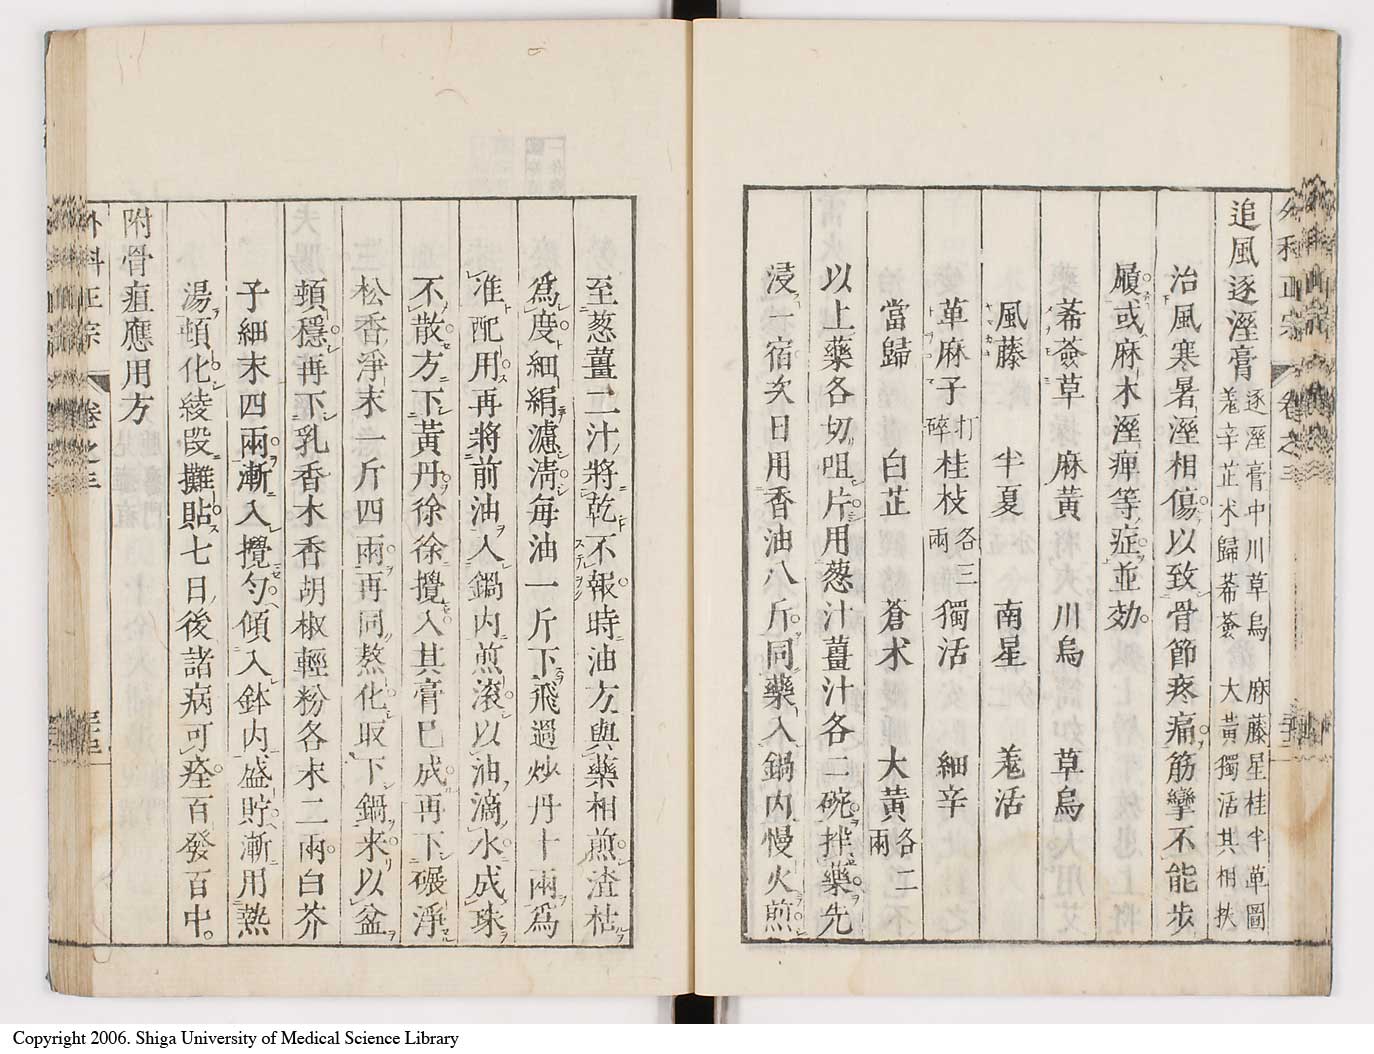 外科正宗 卷之三
追風逐溼膏 逐溼膏中川草烏 麻藤星桂半萆圖
羗辛芷朮歸莃薟 大黃獨活其相扶
治風寒暑溼相傷以致骨節疼痛筋攣不能步
履或麻木溼痺等症並効
莃薟草 麻黃 川烏 草烏
風藤 半夏 南星 羗活
萆麻子打碎 桂枝各三兩 獨活 細辛
當歸 白芷 蒼朮 大黃各二兩
以上藥各切咀片用葱汁薑汁各二碗拌藥先
浸一宿次日用香油八斤同藥入鍋内慢火煎
至葱薑二汁將乾不報時油方與藥相煎渣枯
爲度細絹濾淸每油一斤下飛過炒丹十兩爲
准配用再將前油入鍋内煎滾以油滴水成珠
不散方下黃丹徐徐攪入其膏巳成再下碾淨
松香淨末一斤四兩再同熬化取下鍋來以盆
頓穩再下乳香木香胡椒輕粉各末二兩白芥
子細末四兩漸入攪勻傾入鉢内盛貯漸用熱
湯頓化綾段攤貼七日後諸病可痊百發百中
附骨疽應用方
外科正宗 卷之三
Copyright 2006. Shiga University of Medical Science Library